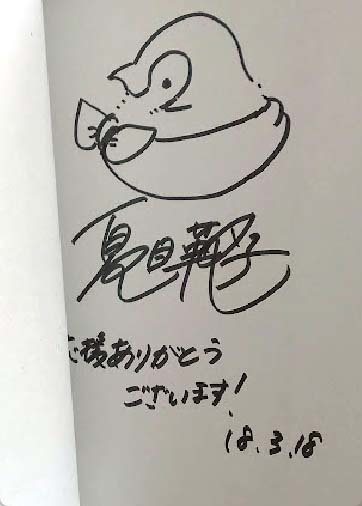 夏目
応援ありがとう
ございます!
18.3.18